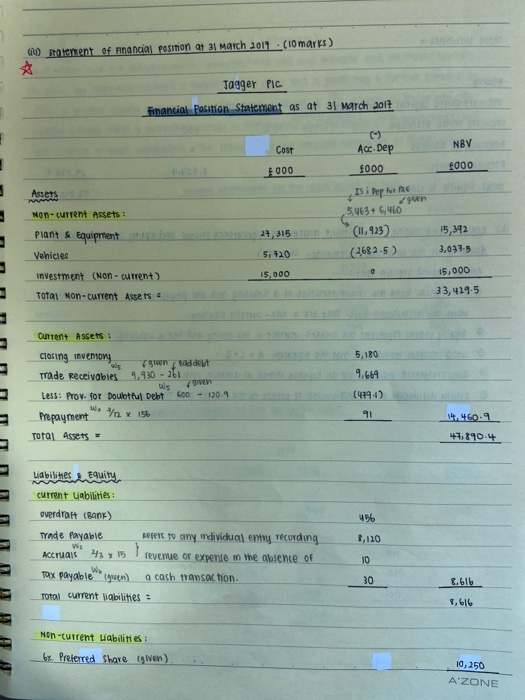 (iii) Statement of Financial Position at 31 March 2017. (10 marks)
Jagger Plc
Financial Position Statement as at 31 March 2017
(-)
Cost Acc. Dep NBV
£000 £000 £000
Assets IS: Dep for
given
Non-current Assets: 5,463 + 6,460
Plant & Equipment 27,315 (11,923) 15,392
Vehicles 5,720 (2682.5) 3,037.5
Investment (Non-current) 15,000 0 15,000
Total Non-current Assets = 33,429.5
Current Assets:
Closing inventory 5,180
W5 given bad debt
Trade Receivables 9,930 - 261 9,669
W5 given
Less: Prov. for Doubtful Debt 600 - 120.9 (479.1)
Prepayment 7/12 x 156 91 14,460.9
Total Assets = 47,890.4
Liabilities & Equity
Current Liabilities:
Overdraft (Bank) 456
Trade Payable Refers to any individual entry recording 8,120
Accruals 2/3 x 15 } revenue or expense in the absence of 10
Tax payable (given) a cash transaction. 30 8,616
Total current liabilities = 8,616
Non-current Liabilities:
6% Preferred Share (given) 10,250
A'ZONE